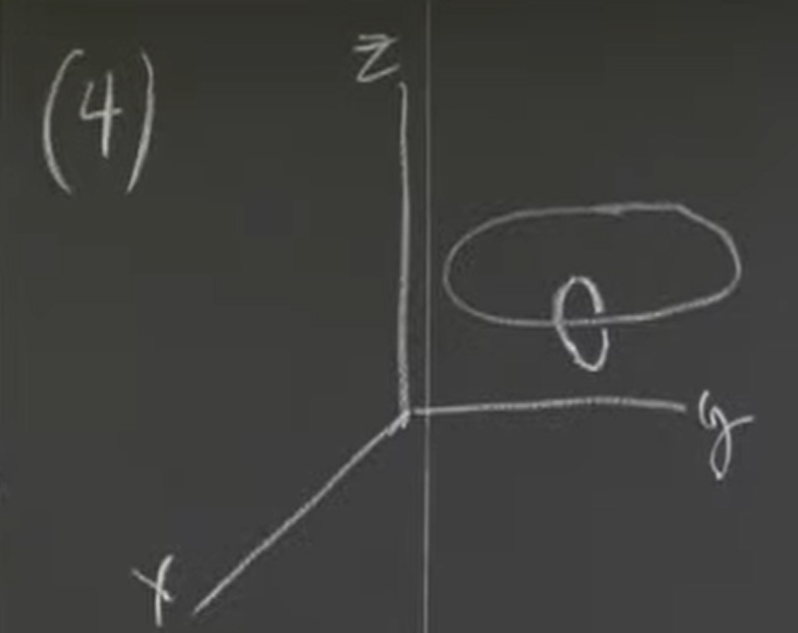 (4)
z
y
x